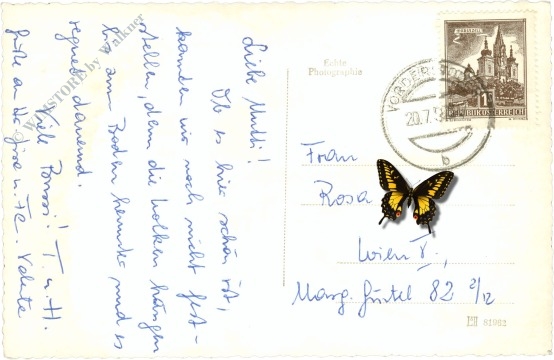 Liebe Mutti!
Ob es hier schön ist,
konnten wir noch nicht fest-
stellen, denn die Wolken hängen
bis zum Boden herunter und es
regnet dauernd.
Viele Bussi! T. u. H.
Grüße an
© WINSTORE by Walkner
Echte
Photographie
MARIAZELL
1
REPUBLIK ÖSTERREICH
20.7.
b
Frau
Rosa
Wien V.,
Marg. Gürtel 82 2/12
81962